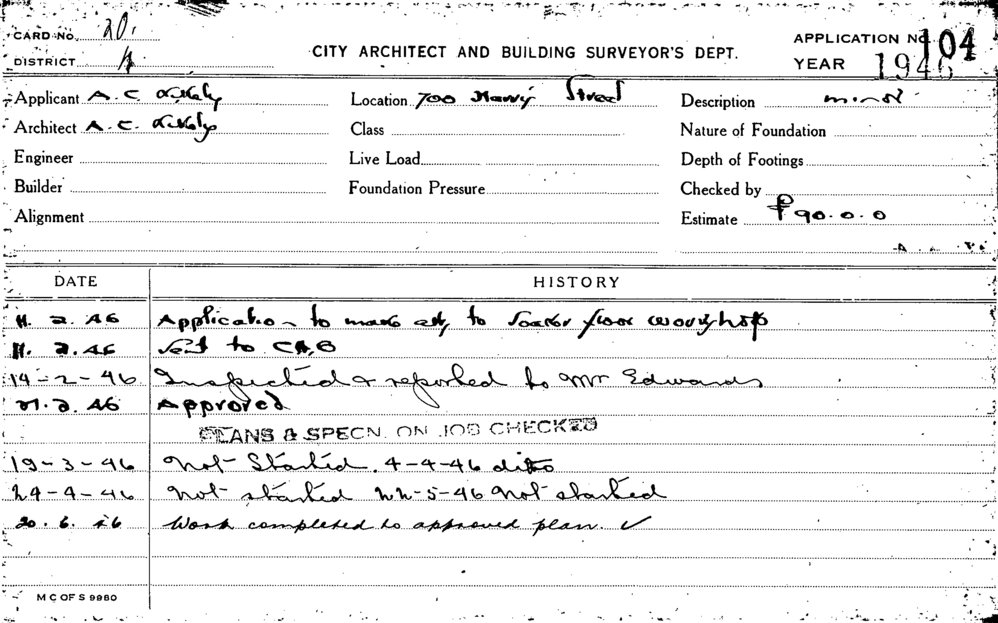 CARD No. 20.
DISTRICT A
CITY ARCHITECT AND BUILDING SURVEYOR'S DEPT.
APPLICATION No. 104
YEAR 1946
Applicant A. C. Location 700 Harris Street Description minor
Architect A. C. Class Nature of Foundation
Engineer Live Load Depth of Footings
Builder Foundation Pressure Checked by
Alignment Estimate £90.0.0
DATE HISTORY
11. 2. 46 Application to make to floor workshop
11. 2. 46 Sent to
14-2-46 Inspected & reported to Mr Edwards
21. 2. 46 Approved
PLANS & SPECN. ON JOB CHECKED
19-3-46 Not Started. 4-4-46 ditto
24-4-46 Not started 22-5-46 Not started
20. 6. 46 Work completed to approved plan. ✓
M C OF S 9980